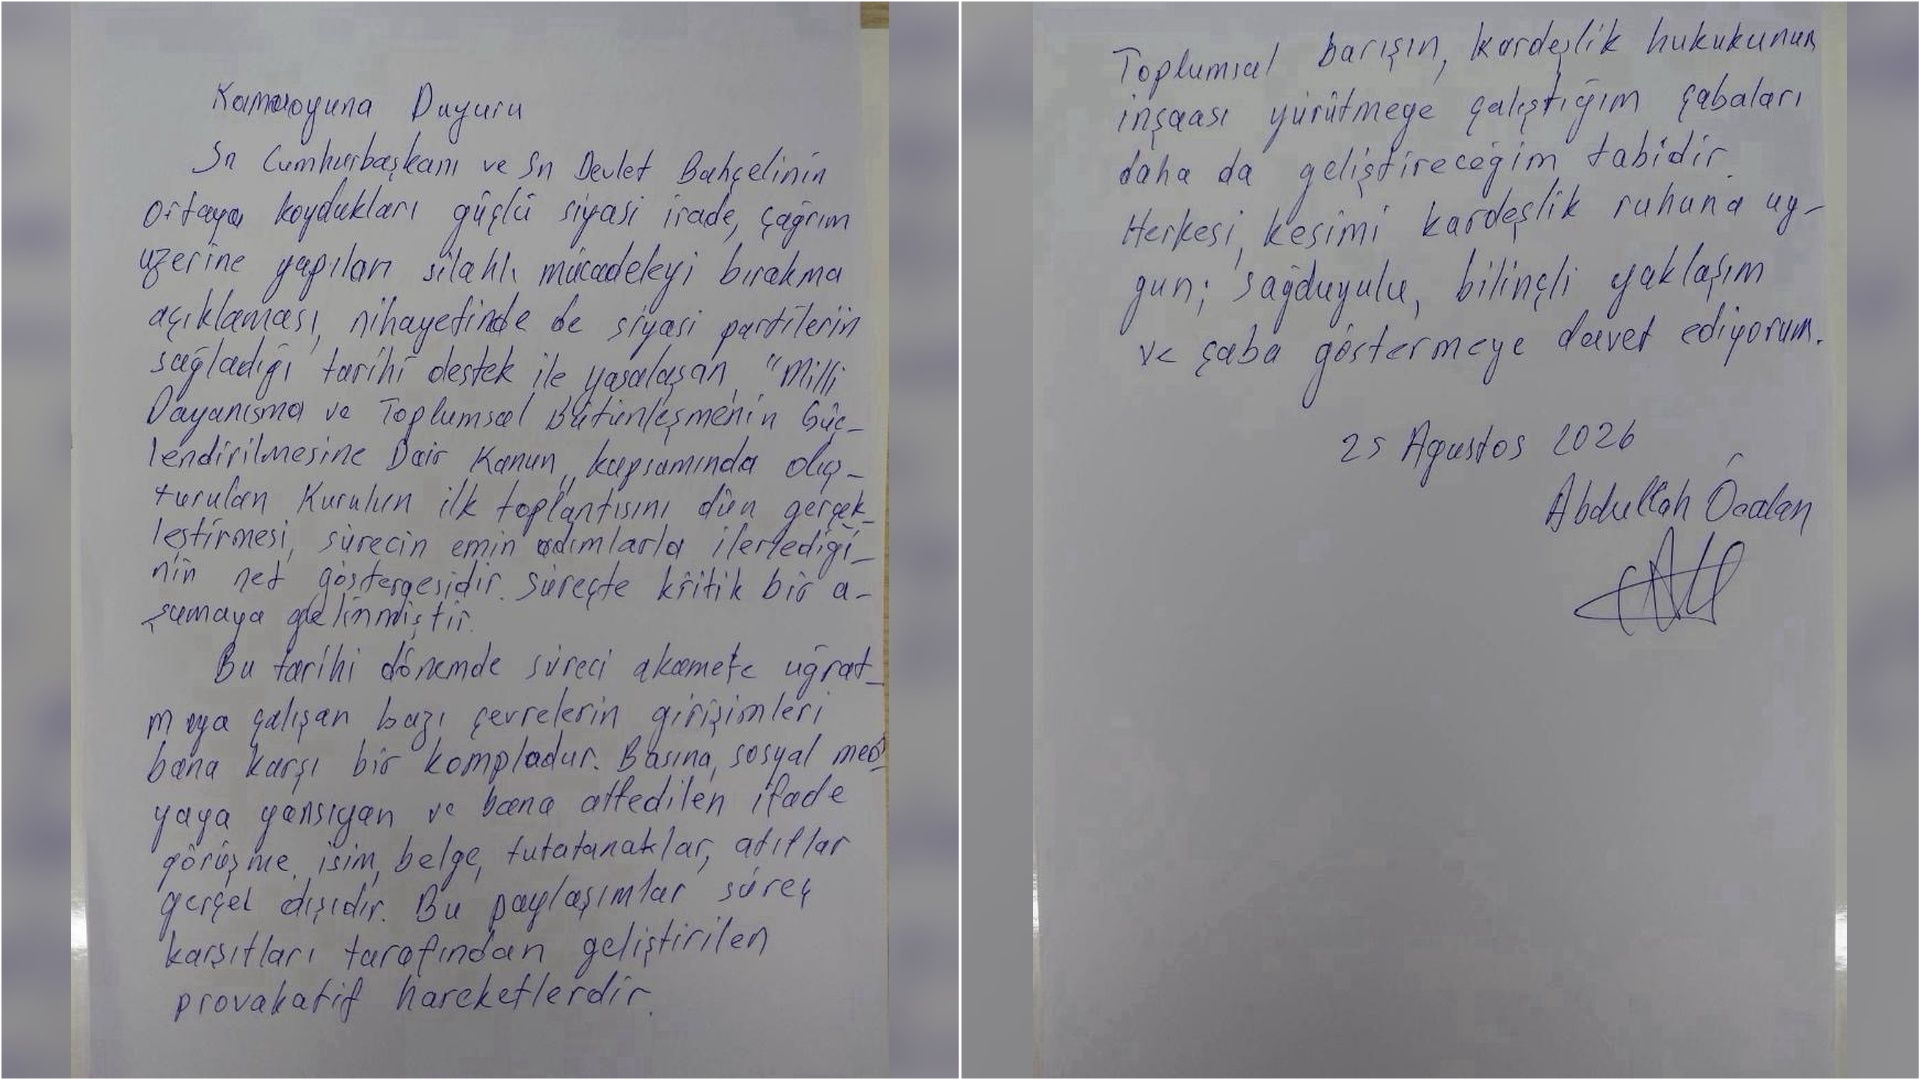 Kamuoyuna Duyuru
Sn Cumhurbaşkanı ve Sn Devlet Bahçelinin
ortaya koydukları güçlü siyasi irade, çağrım
üzerine yapılan silahlı mücadeleyi bırakma
açıklaması, nihayetinde de siyasi partilerin
sağladığı tarihi destek ile yasalaşan, "Milli
Dayanışma ve Toplumsal Bütünleşme'nin Güç-
lendirilmesine Dair Kanun" kapsamında oluş-
turulan Kurulun ilk toplantısını dün gerçek-
leştirmesi, sürecin emin adımlarla ilerlediği-
nin net göstergesidir. Süreçte kritik bir a-
şamaya gelinmiştir.
Bu tarihi dönemde süreci akamete uğrat-
maya çalışan bazı çevrelerin girişimleri
bana karşı bir kompladur. Basına, sosyal med-
yaya yansıyan ve bana atfedilen ifade
görüşme, isim, belge, tutatanaklar, atıflar
gerçek dışıdır. Bu paylaşımlar süreç
karşıtları tarafından geliştirilen
provakatif hareketlerdir.
Toplumsal barışın, kardeşlik hukukunun
inşaası yürütmeye çalıştığım çabaları
daha da geliştireceğim tabidir.
Herkesi, kesimi kardeşlik ruhuna uy-
gun; sağduyulu, bilinçli yaklaşım
ve çaba göstermeye davet ediyorum.
25 Ağustos 2026
Abdullah Öcalan